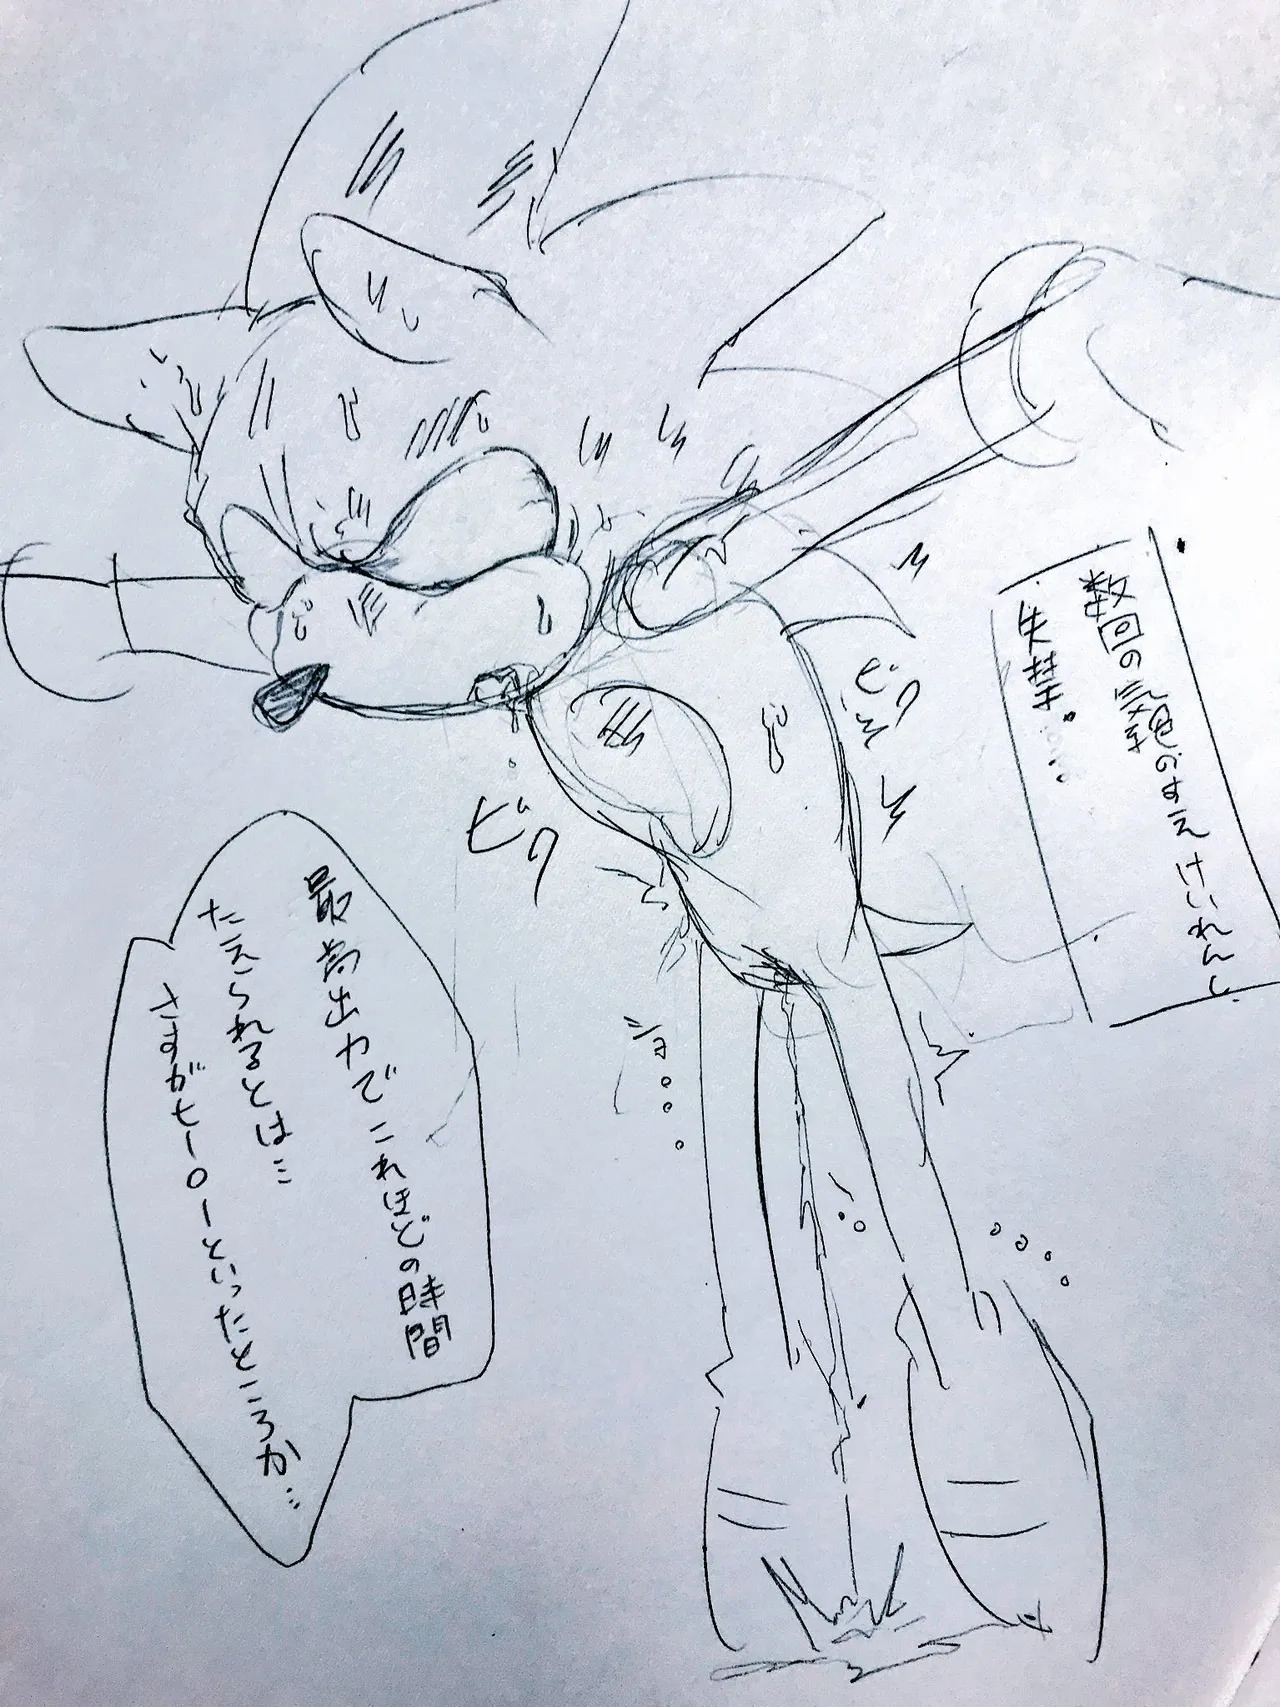 数回の気絶のすえけいれんし
失禁。
ビク
ビク
ショ。。。
最高出力でこれほどの時間
たえられるとは…
さすがヒーローといったところか…